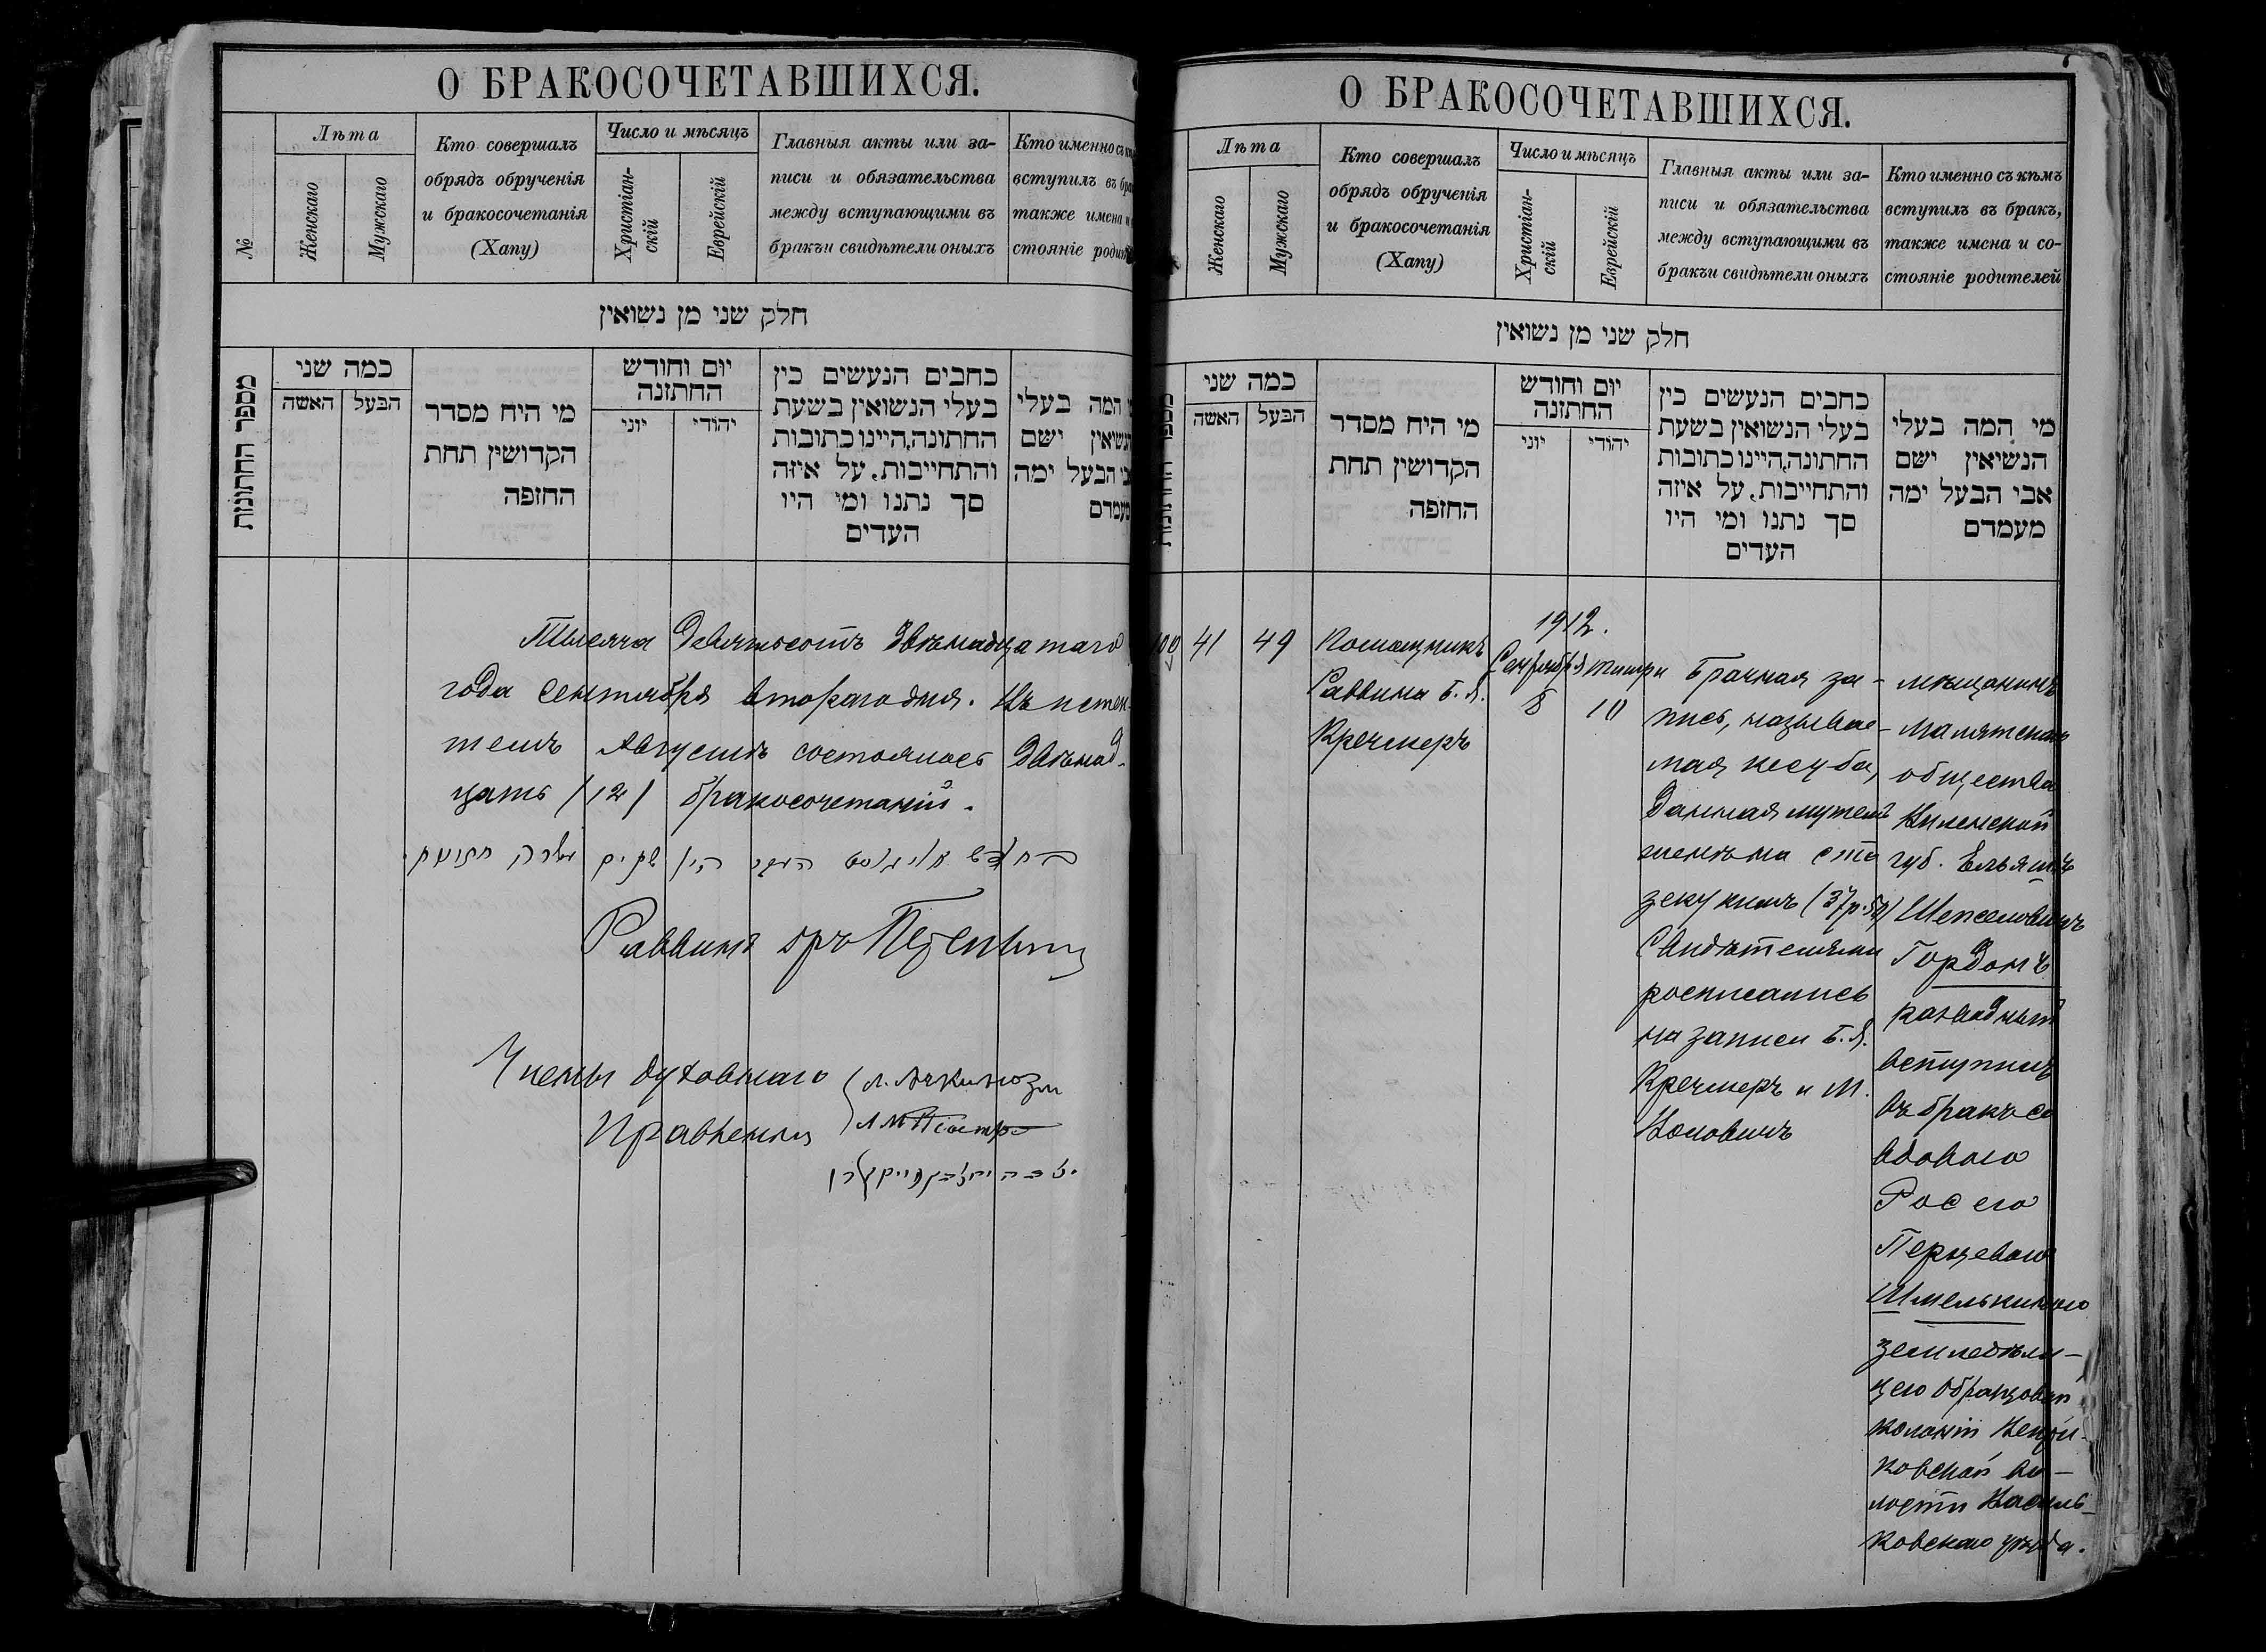 О БРАКОСОЧЕТАВШИХСЯ.
№
Лѣта
Женскаго
Мужскаго
Кто совершалъ
обрядъ обрученія
и бракосочетанія
(Хапу)
Число и мѣсяцъ
Христіан-
скій
Еврейскій
Главныя акты или за-
писи и обязательства
между вступающими въ
бракъи свидѣтели оныхъ
Кто именно съ
вступилъ въ
также имена и
стояніе
חלק שני מן נשואין
מספר החתונות
כמה שני
האשה
הבעל
מי היח מסדר
הקדושין תחת
החופה
יום וחודש
החתונה
יוני
יהודי
כתבים הנעשים בין
בעלי הנשואין בשעת
החתונה,היינו כתובות
והתחייבות, על איזה
סך נתנו ומי היו
העדים
המה בעלי
ישם
הבעל ימה
Тысяча девятьсотъ двѣнадцатаго
года сентября второго дня. Въ истек-
шемъ Августѣ состоялось двѣнад-
цать /12/ бракосочетаній.
Раввинъ
Члены духовнаго
Правленія
О БРАКОСОЧЕТАВШИХСЯ.
Лѣта
Женскаго
Мужскаго
Кто совершалъ
обрядъ обрученія
и бракосочетанія
(Хапу)
Число и мѣсяцъ
Христіан-
скій
Еврейскій
Главныя акты или за-
писи и обязательства
между вступающими въ
бракъи свидѣтели оныхъ
Кто именно съ кѣмъ
вступилъ въ бракъ,
также имена и со-
стояніе родителей
חלק שני מן נשואין
כמה שני
האשה
הבעל
מי היח מסדר
הקדושין תחת
החופה
יום וחודש
החתונה
יוני
יהודי
כתבים הנעשים בין
בעלי הנשואין בשעת
החתונה,היינו כתובות
והתחייבות, על איזה
סך נתנו ומי היו
העדים
מי המה בעלי
הנשיאין ישם
אבי הבעל ימה
מעמדם
100
41
49
Помощникъ
Раввина Б. Я.
Кречмеръ
1912.
Сентября
8
Тишри
10
Брачная за-
пись, называе-
мая кесуба,
данная мужемъ
женѣ на сто
зекукимъ (37р.50)
Свидѣтелями
росписались
на записи Б. Я.
Кречмеръ и М.
мѣщанинъ
Малятскаго
общества
Виленской
губ. Ельяшъ
Шепселовичъ
Гордонъ
разводный
вступилъ
въ бракъ со
вдовою
Росею
Перцевою
Шмелькиною
земледѣли-
цею Образцовой
колоніи
ковской во-
лости Василь-
ковскаго уѣзда.